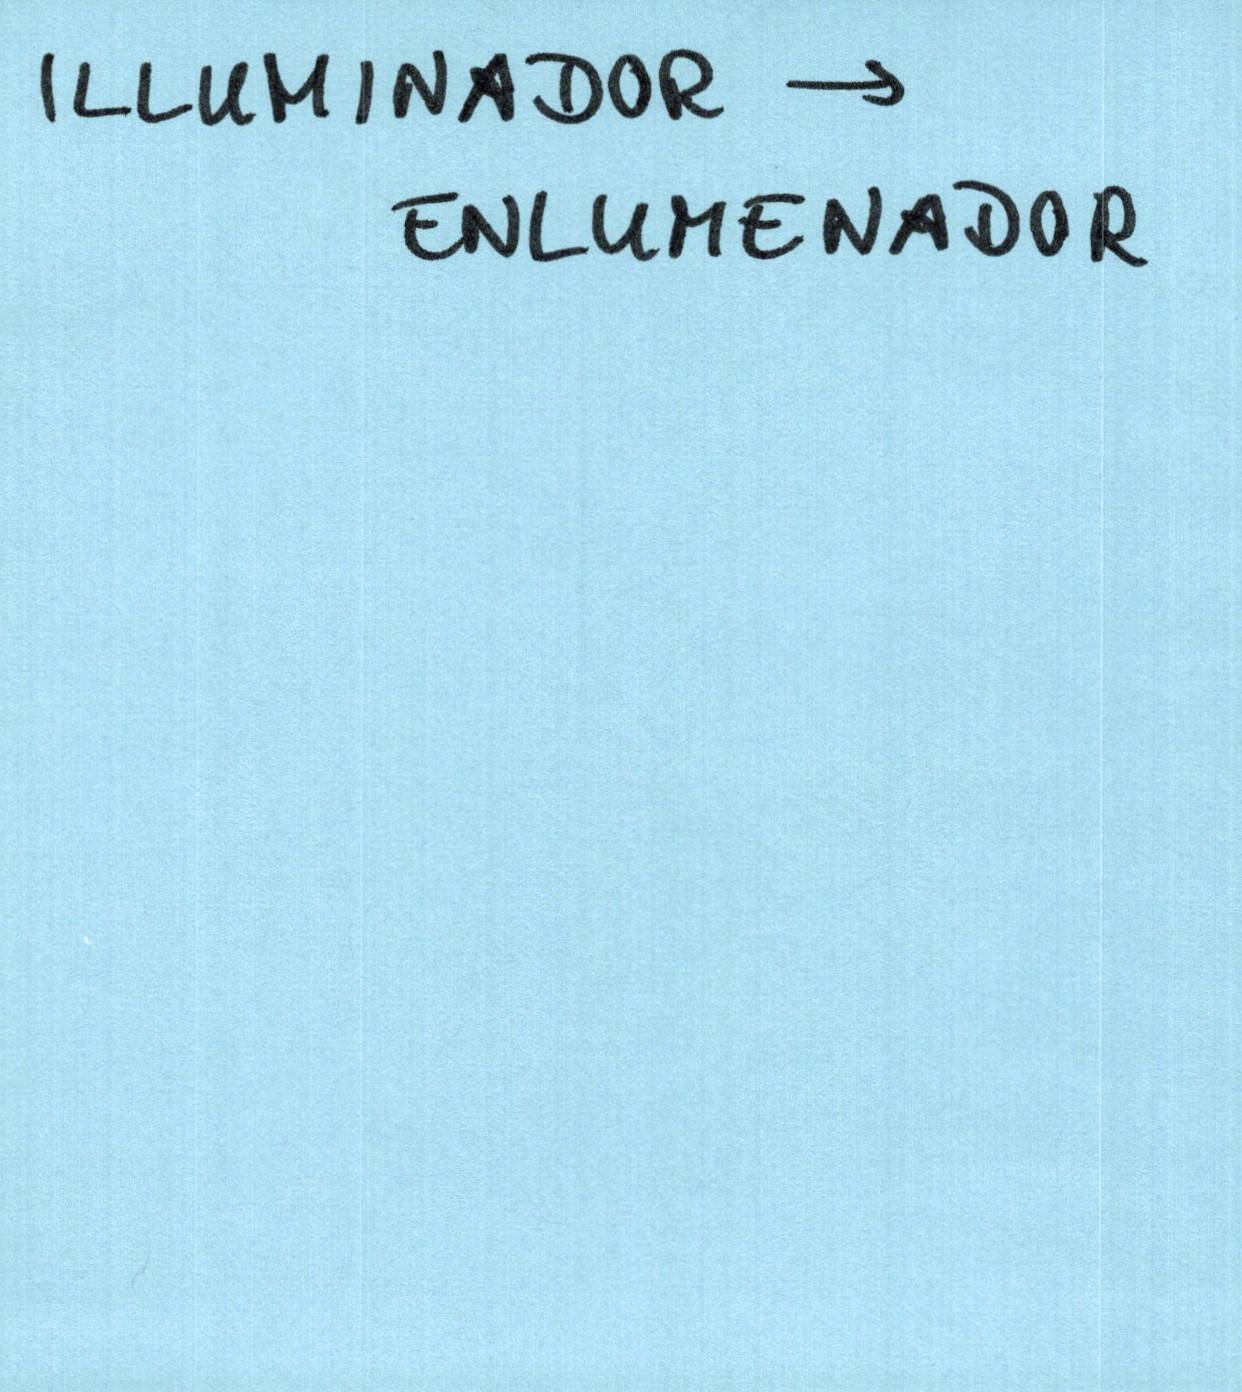 ILLUMINADOR →
ENLUMENADOR